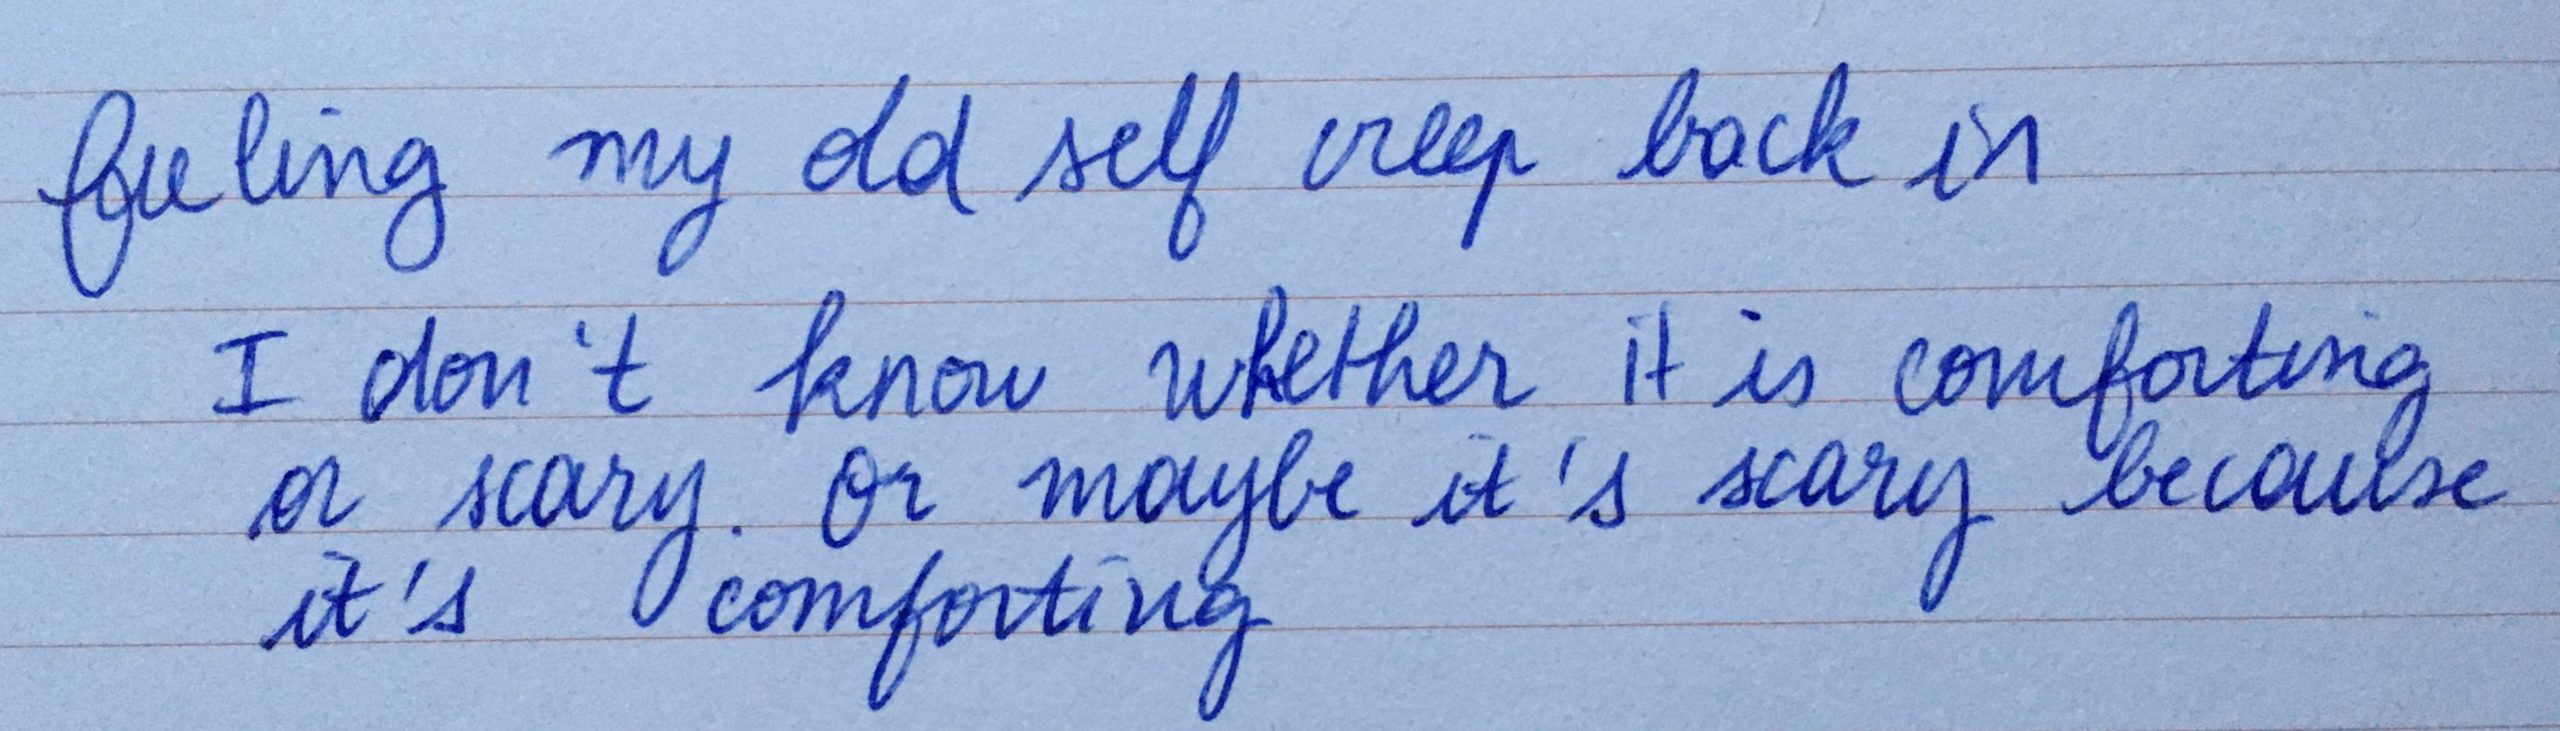 feeling my old self creep back in
I don't know whether it is comforting
or scary. Or maybe it's scary because
it's comforting